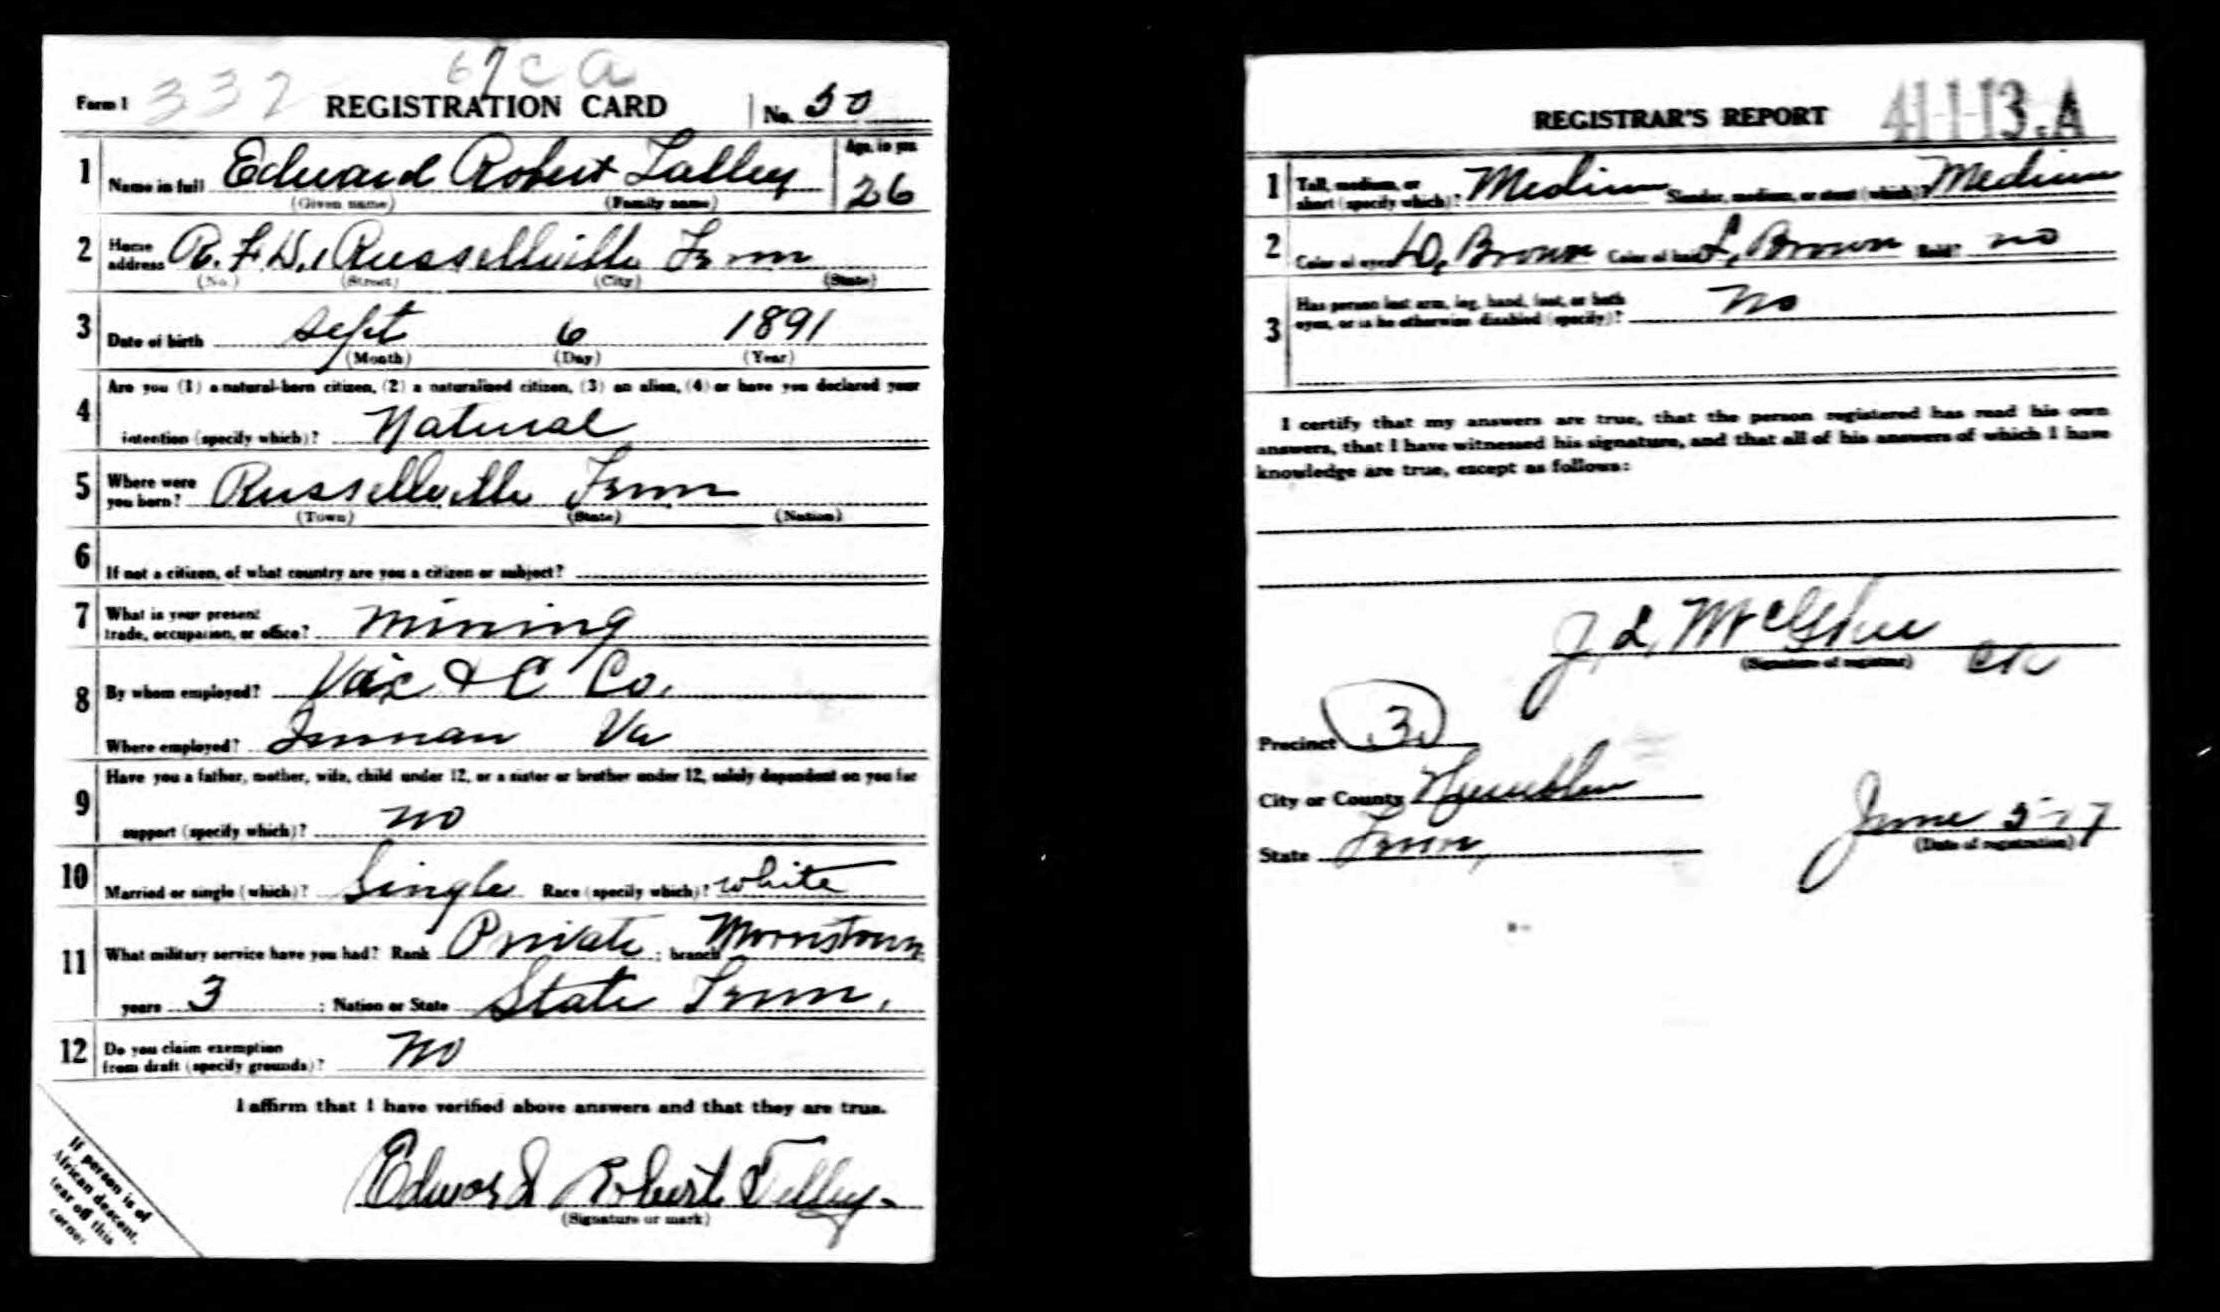 67 c a
Form 1 332 REGISTRATION CARD No. 50
1 Name in full Edward Robert Talley Age, in yrs 26
(Given name) (Family name)
2 Home address R.F.D., Russellville Tenn
(No.) (Street) (City) (State)
3 Date of birth Sept 6 1891
(Month) (Day) (Year)
Are you (1) a natural-born citizen, (2) a naturalized citizen, (3) an alien, (4) or have you declared your
4 intention (specify which)? Natural
5 Where were you born? Russellville Tenn
(Town) (State) (Nation)
6 If not a citizen, of what country are you a citizen or subject?
7 What is your present trade, occupation, or office? Mining
8 By whom employed? & C Co.
Where employed? Va
Have you a father, mother, wife, child under 12, or a sister or brother under 12, solely dependent on you for
9 support (specify which)? no
10 Married or single (which)? Single Race (specify which)? white
11 What military service have you had? Rank Private ; branch Morristown ;
years 3 ; Nation or State State Tenn.
12 Do you claim exemption from draft (specify grounds)? No
I affirm that I have verified above answers and that they are true.
Edward Robert Talley
(Signature or mark)
If person is of
African descent,
tear off this
corner
REGISTRAR'S REPORT 41-1-13.A
1 Tall, medium, or short (specify which)? Medium Slender, medium, or stout (which)? Medium
2 Color of eyes D. Brown Color of hair L. Brown Bald? no
3 Has person lost arm, leg, hand, foot, or both eyes, or is he otherwise disabled (specify)? No
I certify that my answers are true, that the person registered has read his own
answers, that I have witnessed his signature, and that all of his answers of which I have
knowledge are true, except as follows:
J. L. McGhee
(Signature of registrar)
Precinct 3
City or County Hamblen
State Tenn, June 5-17
(Date of registration)